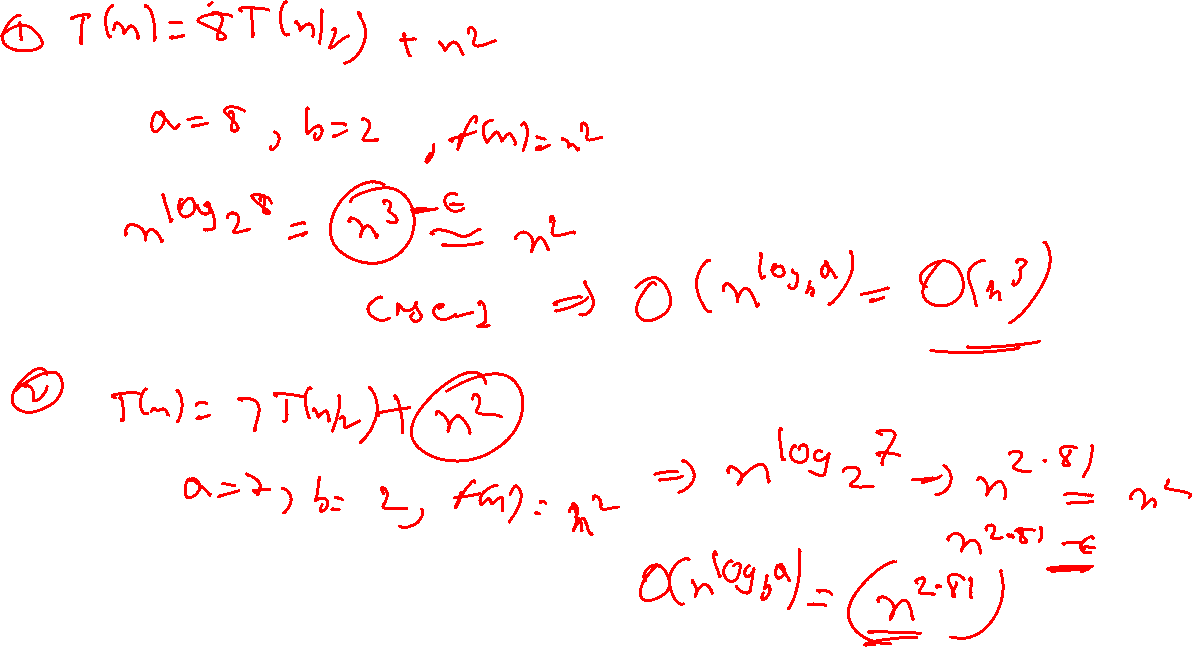 ① T(n) = 8T(n/2) + n²
a = 8, b = 2, f(n) = n²
n^log₂8 = n³ -ϵ ≃ n²
Case-1 ⇒ O(n^log_b a) = O(n³)
② T(n) = 7T(n/2) + n²
a = 7, b = 2, f(n) = n² ⇒ n^log₂7 → n^2.81 = n²
n^2.81 -ϵ
O(n^log_b a) = (n^2.81)